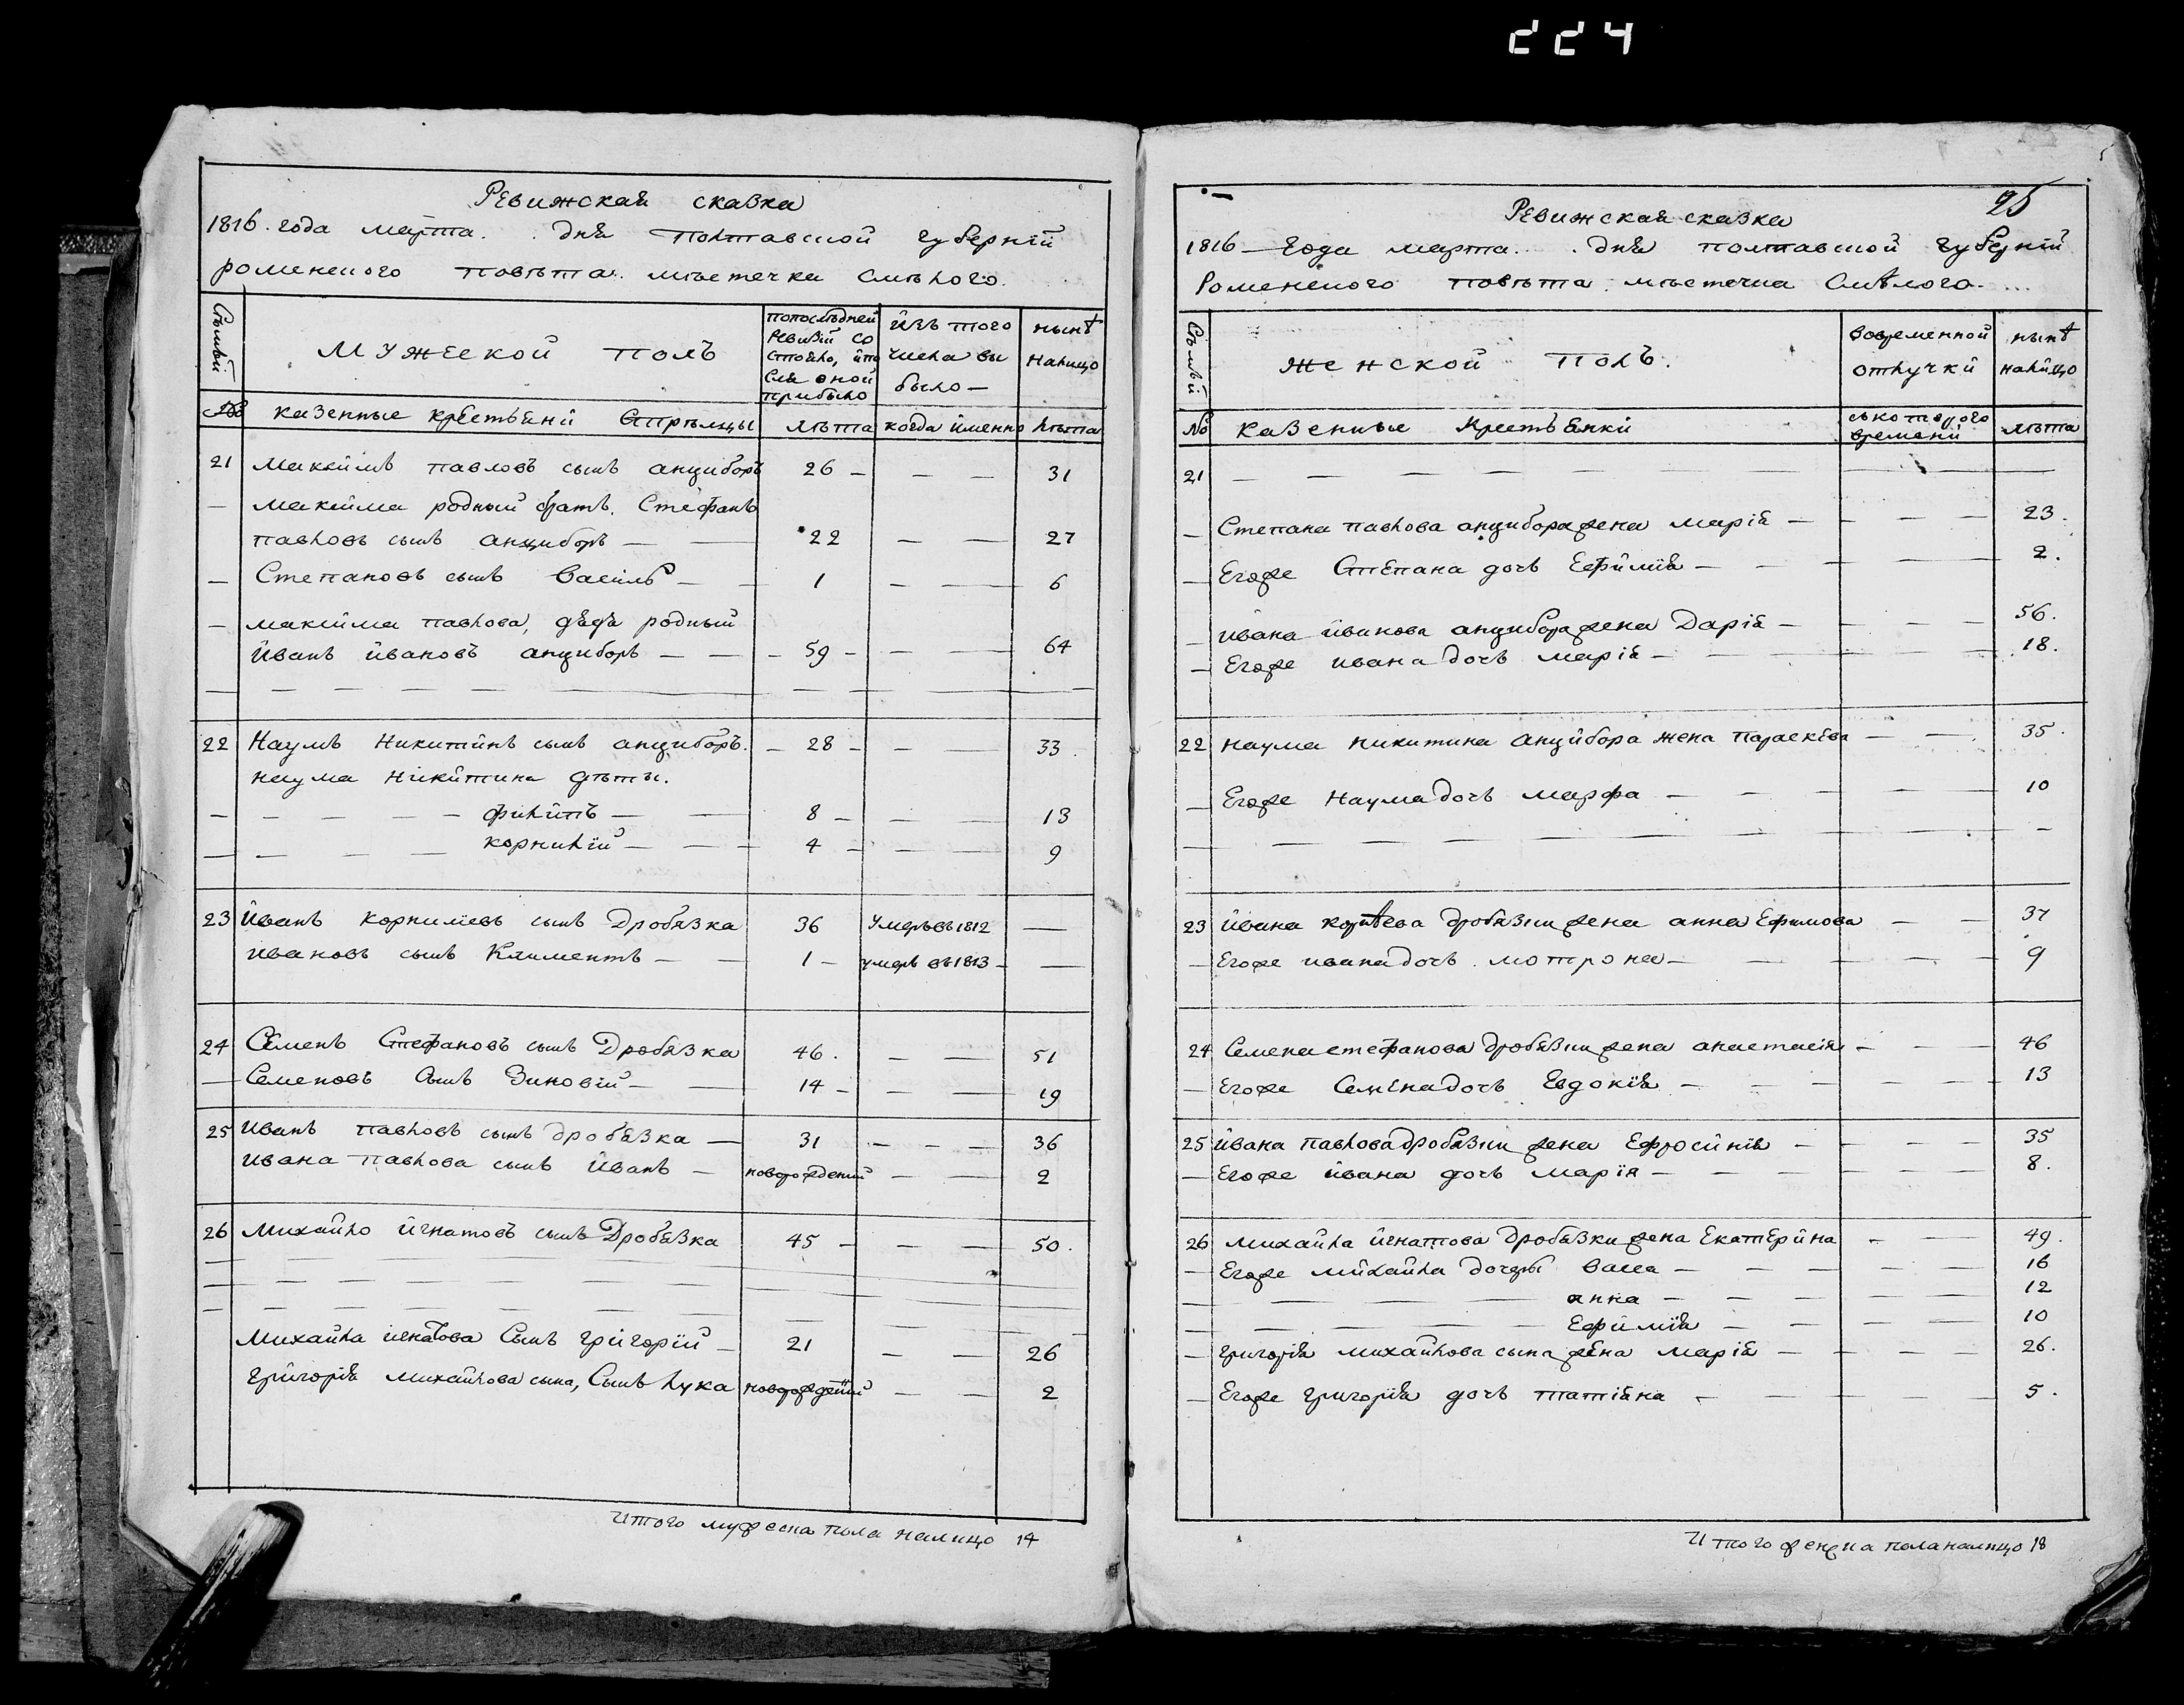 224
Ревижская сказка
1816. года марта . дня полтавской губернїй
роменского повѣта. мѣстечка смѣлого.
Семьи
Мужеской полъ
попослѣдней ревизїй состояло, ипослѣ оной прибыло
изъ того числа выбыло —
нынѣ налицо
№ казенные крестьяни Стрѣлцы лѣта когда именно лѣта
21 Максимъ павловъ сынъ анциборъ 26 — — — 31
— максима родный братъ. Стефанъ
павловъ сынъ анциборъ — 22 — — 27
— Степановъ сынъ Василь — 1 — — 6
— максима павлова, дядя родный
Иванъ ивановъ анциборъ — — 59 — — — 64
22 Наумъ Никитинъ сынъ анциборъ. — 28 — — — 33.
наума Никитина дѣты.
— — — — — филипъ — — 8 — — — 13
— — — — корнилїй — — 4 — — — 9
23 Иванъ корнилїевъ сынъ Дробязка 36 умеръ въ 1812 —
ивановъ сынъ Климентъ — — 1 — умеръ въ 1813 — —
24 Семенъ Стефановъ сынъ Дробязка 46. — — 51
— Семеновъ сынъ Зиновїй — — 14 — — — 19
25 Иванъ павловъ сынъ дробязка — 31 — — — 36
ивана павлова сынъ Иванъ — новорожденый — — 2
26 Михайло игнатовъ сынъ Дробязка 45 — — — 50.
Михайла игнатова Сынъ григорїй — 21 — — 26
григорїя михайлова сына, Сынъ лука новорожденый — — 2
Итого мужеска пола налицо 14
25
Ревижская сказка
1816 — Года марта . . дня полтавской губернїй
Роменского повѣта. мѣстечка Смѣлого.
Семьи
женской полъ.
вовременной отлучкй
нынѣ налицо
№ казенные крестьянки съкоторого времени лѣта
21 — — — — — — —
— Степана павлова анцибора жена марїя — — — — 23.
— Егоже Степана дочь Ефимїя — — — — 2.
— ивана иванова анцибора жена Дарїя — — — — 56.
— Егоже ивана дочь марїя — — — — 18.
22 наума никитина анцибора жена параскѣва — — 35.
— Егоже Наума дочь марфа — — — — 10
— — — — — — — —
23 ивана дробязки жена анна Ефимова — — 37
— Егоже ивана дочь. мотрона — — — 9
24 Семена стефанова дробязки жена анастасїя — — — 46
— Егоже Семена дочь Евдокїя — — — — 13
25 ивана павлова дробязки жена Ефросинїя — — — — 35
— Егоже ивана дочь марїя — — — — — 8.
26 михайла игнатова дробязки жена Екатерина — — 49.
— Егоже михайла дочеры васса — — — — 16
— — — — анна — — — — 12
— — — — — Ефимїя — — — — 10
— григорїя михайлова сына жена марїя — — — — 26.
— Егоже григорїя дочь татїяна — — — — 5.
Итого женска пола налицо 18